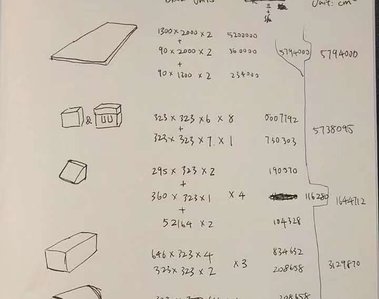 Unit: cm²
1300 × 2000 × 2 5200000
+
90 × 2000 × 2 360000 5794000 5794000
+
90 × 1300 × 2 234000
& 323 × 323 × 6 × 8 5007792
+
323 × 323 × 7 × 1 730303 5738095
295 × 323 × 2 190570
+
360 × 323 × 1 × 4 116280 1644712
+
52164 × 2 104328
646 × 323 × 4 834632
323 × 323 × 2 × 3 208658 3129870
208658